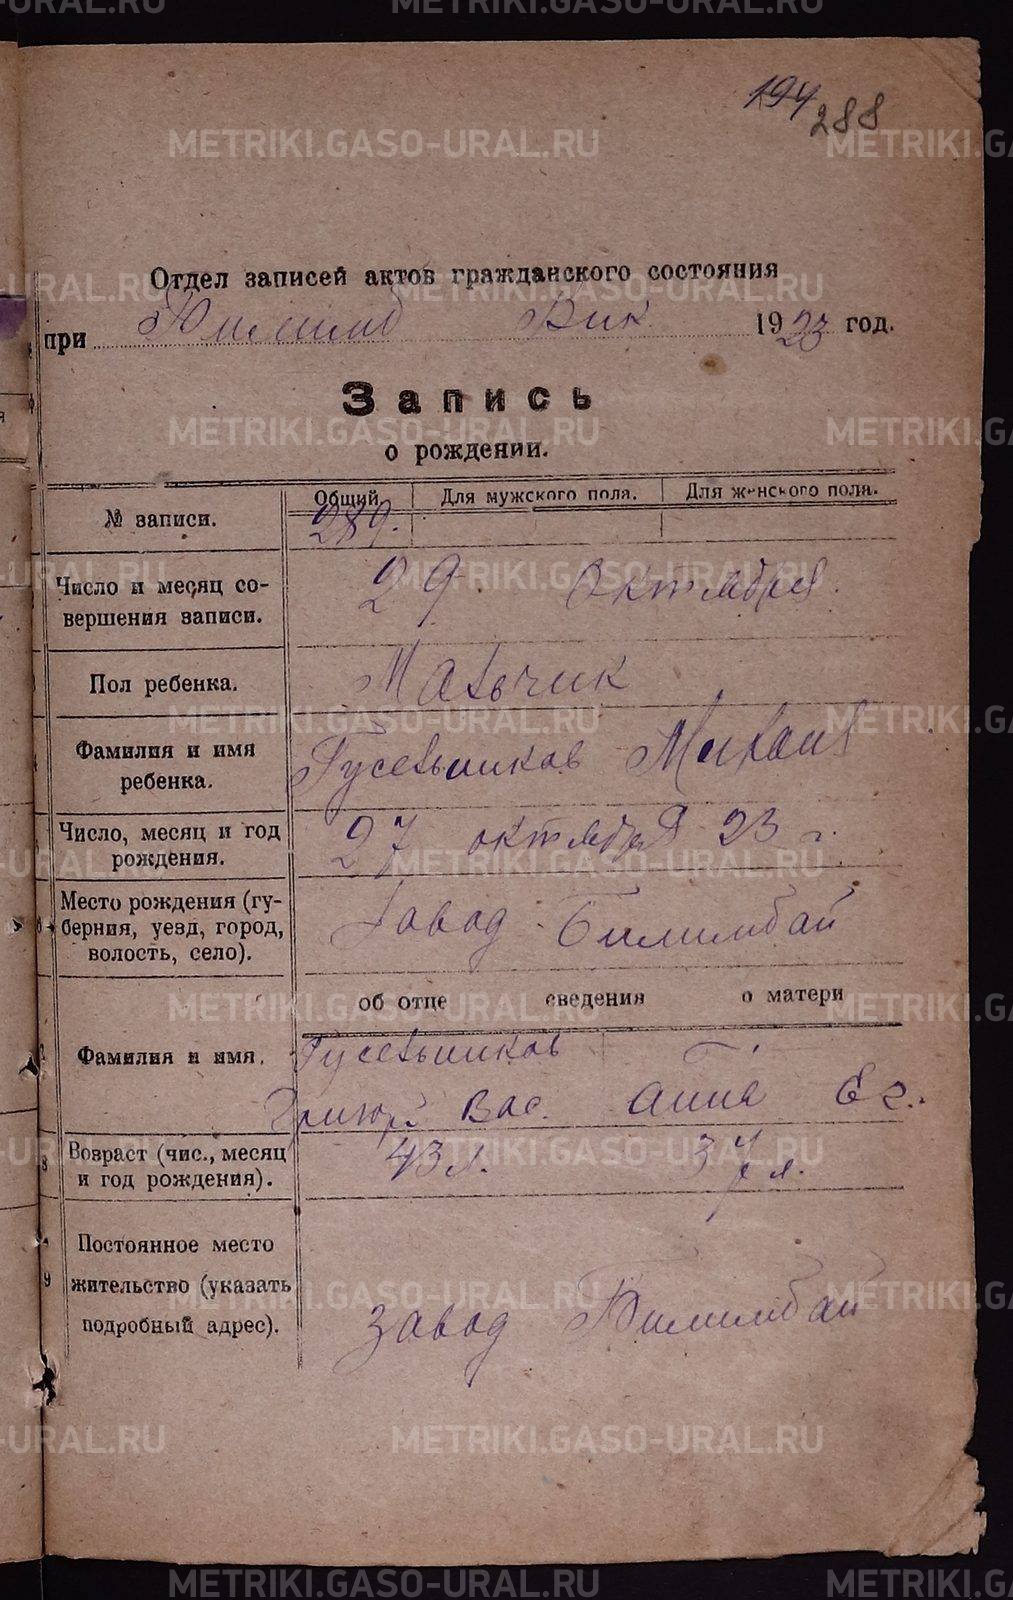 194 288
Отдел записей актов гражданского состояния
при Билимб Вик. 1923 год.
Запись
о рождении.
№ записи. Общий Для мужского пола. Для женского пола.
289.
Число и месяц совершения записи. 29 Октября.
Пол ребенка. Мальчик
Фамилия и имя ребенка. Гусельников Михаил
Число, месяц и год рождения. 27 октября 23 г.
Место рождения (губерния, уезд, город, волость, село). Завод Билимбай
об отце сведения о матери
Фамилия и имя. Гусельников Г.
Григор. Вас. Анна Ег.
Возраст (чис., месяц и год рождения). 43 л. 37 л.
Постоянное место жительство (указать подробный адрес). завод Билимбай
METRIKI.GASO-URAL.RU